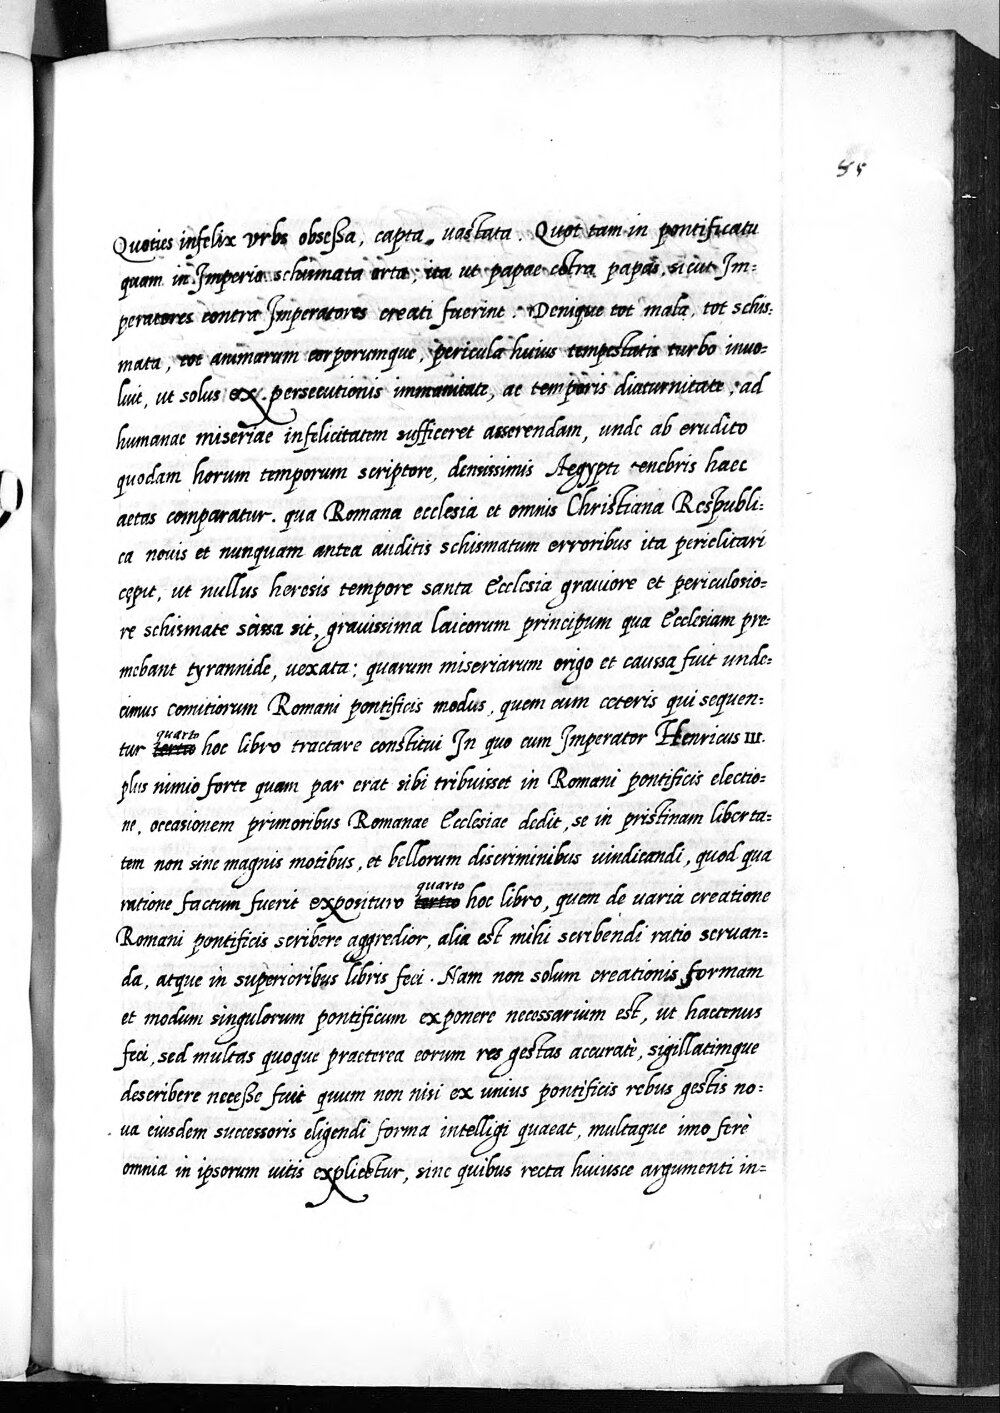 85
Quoties infelix vrbs obsessa, capta, uastata. Quot tam in pontificatu
quam in Imperio schismata orta; ita ut papae cõtra papas, sicut Im-
peratores contra Imperatores creati fuerint. Denique tot mala, tot schis-
mata, tot animarum corporumque, pericula huius tempestatis turbo inuo-
luit, ut solus ex persecutionis immanitate, ac temporis diuturnitate, ad
humanae miseriae infelicitatem sufficeret asserendam, unde ab erudito
quodam horum temporum scriptore, densissimis Aegypti tenebris haec
aetas comparatur. qua Romana ecclesia et omnis Christiana Respubli-
ca nouis et nunquam antea auditis schismatum erroribus ita periclitari
cępit, ut nullus heresis tempore santa Ecclesia grauiore et periculosio-
re schismate scissa sit, grauissima laicorum principum qua Ecclesiam pre-
mebant tyrannide, uexata; quarum miseriarum origo et caussa fuit unde-
cimus comitiorum Romani pontificis modus, quem cum ceteris qui sequen-
quarto
tur tertio hoc libro tractare constitui In quo cum Imperator Henricus III.
plus nimio forte quam par erat sibi tribuisset in Romani pontificis electio-
ne, occasionem primoribus Romanae Ecclesiae dedit, se in pristinam liberta-
tem non sine magnis motibus, et bellorum discriminibus uindicandi, quod qua
quarto
ratione factum fuerit exposituro tertio hoc libro, quem de uaria creatione
Romani pontificis scribere aggredior, alia est mihi scribendi ratio seruan-
da, atque in superioribus libris feci. Nam non solum creationis formam
et modum singulorum pontificum exponere necessarium est, ut hactenus
feci, sed multas quoque praeterea eorum res gestas accuratè, sigillatimque
describere necesse fuit quum non nisi ex unius pontificis rebus gestis no-
ua eiusdem successoris eligendi forma intelligi quaeat, multaque imo ferè
omnia in ipsorum uitis explicetur, sine quibus recta huiusce argumenti in-